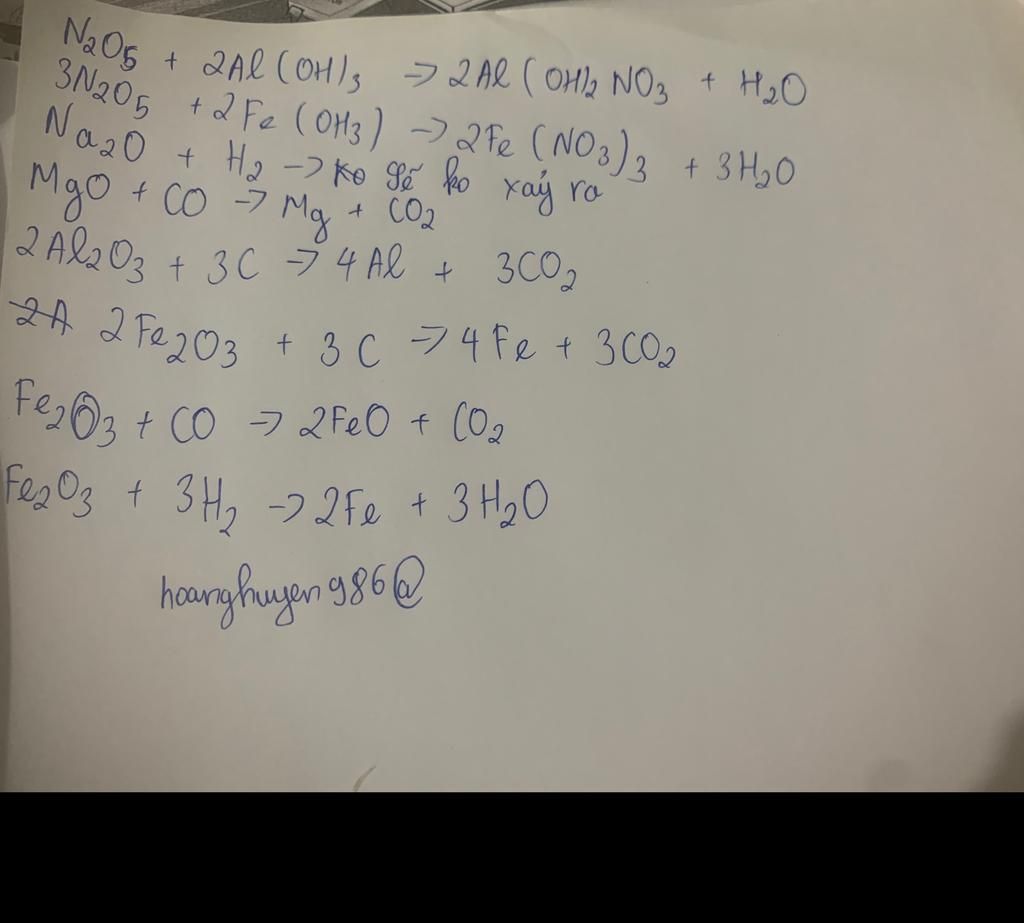 N₂O₅ + 2Al(OH)₃ → 2Al(OH)₂NO₃ + H₂O
3N₂O₅ + 2Fe(OH₃) → 2Fe(NO₃)₃ + 3H₂O
Na₂O + H₂ → ko xảy ra
MgO + CO → Mg + CO₂
2Al₂O₃ + 3C → 4Al + 3CO₂
2A 2Fe₂O₃ + 3C → 4Fe + 3CO₂
Fe₂O₃ + CO → 2FeO + CO₂
Fe₂O₃ + 3H₂ → 2Fe + 3H₂O
hoanghuyen986@